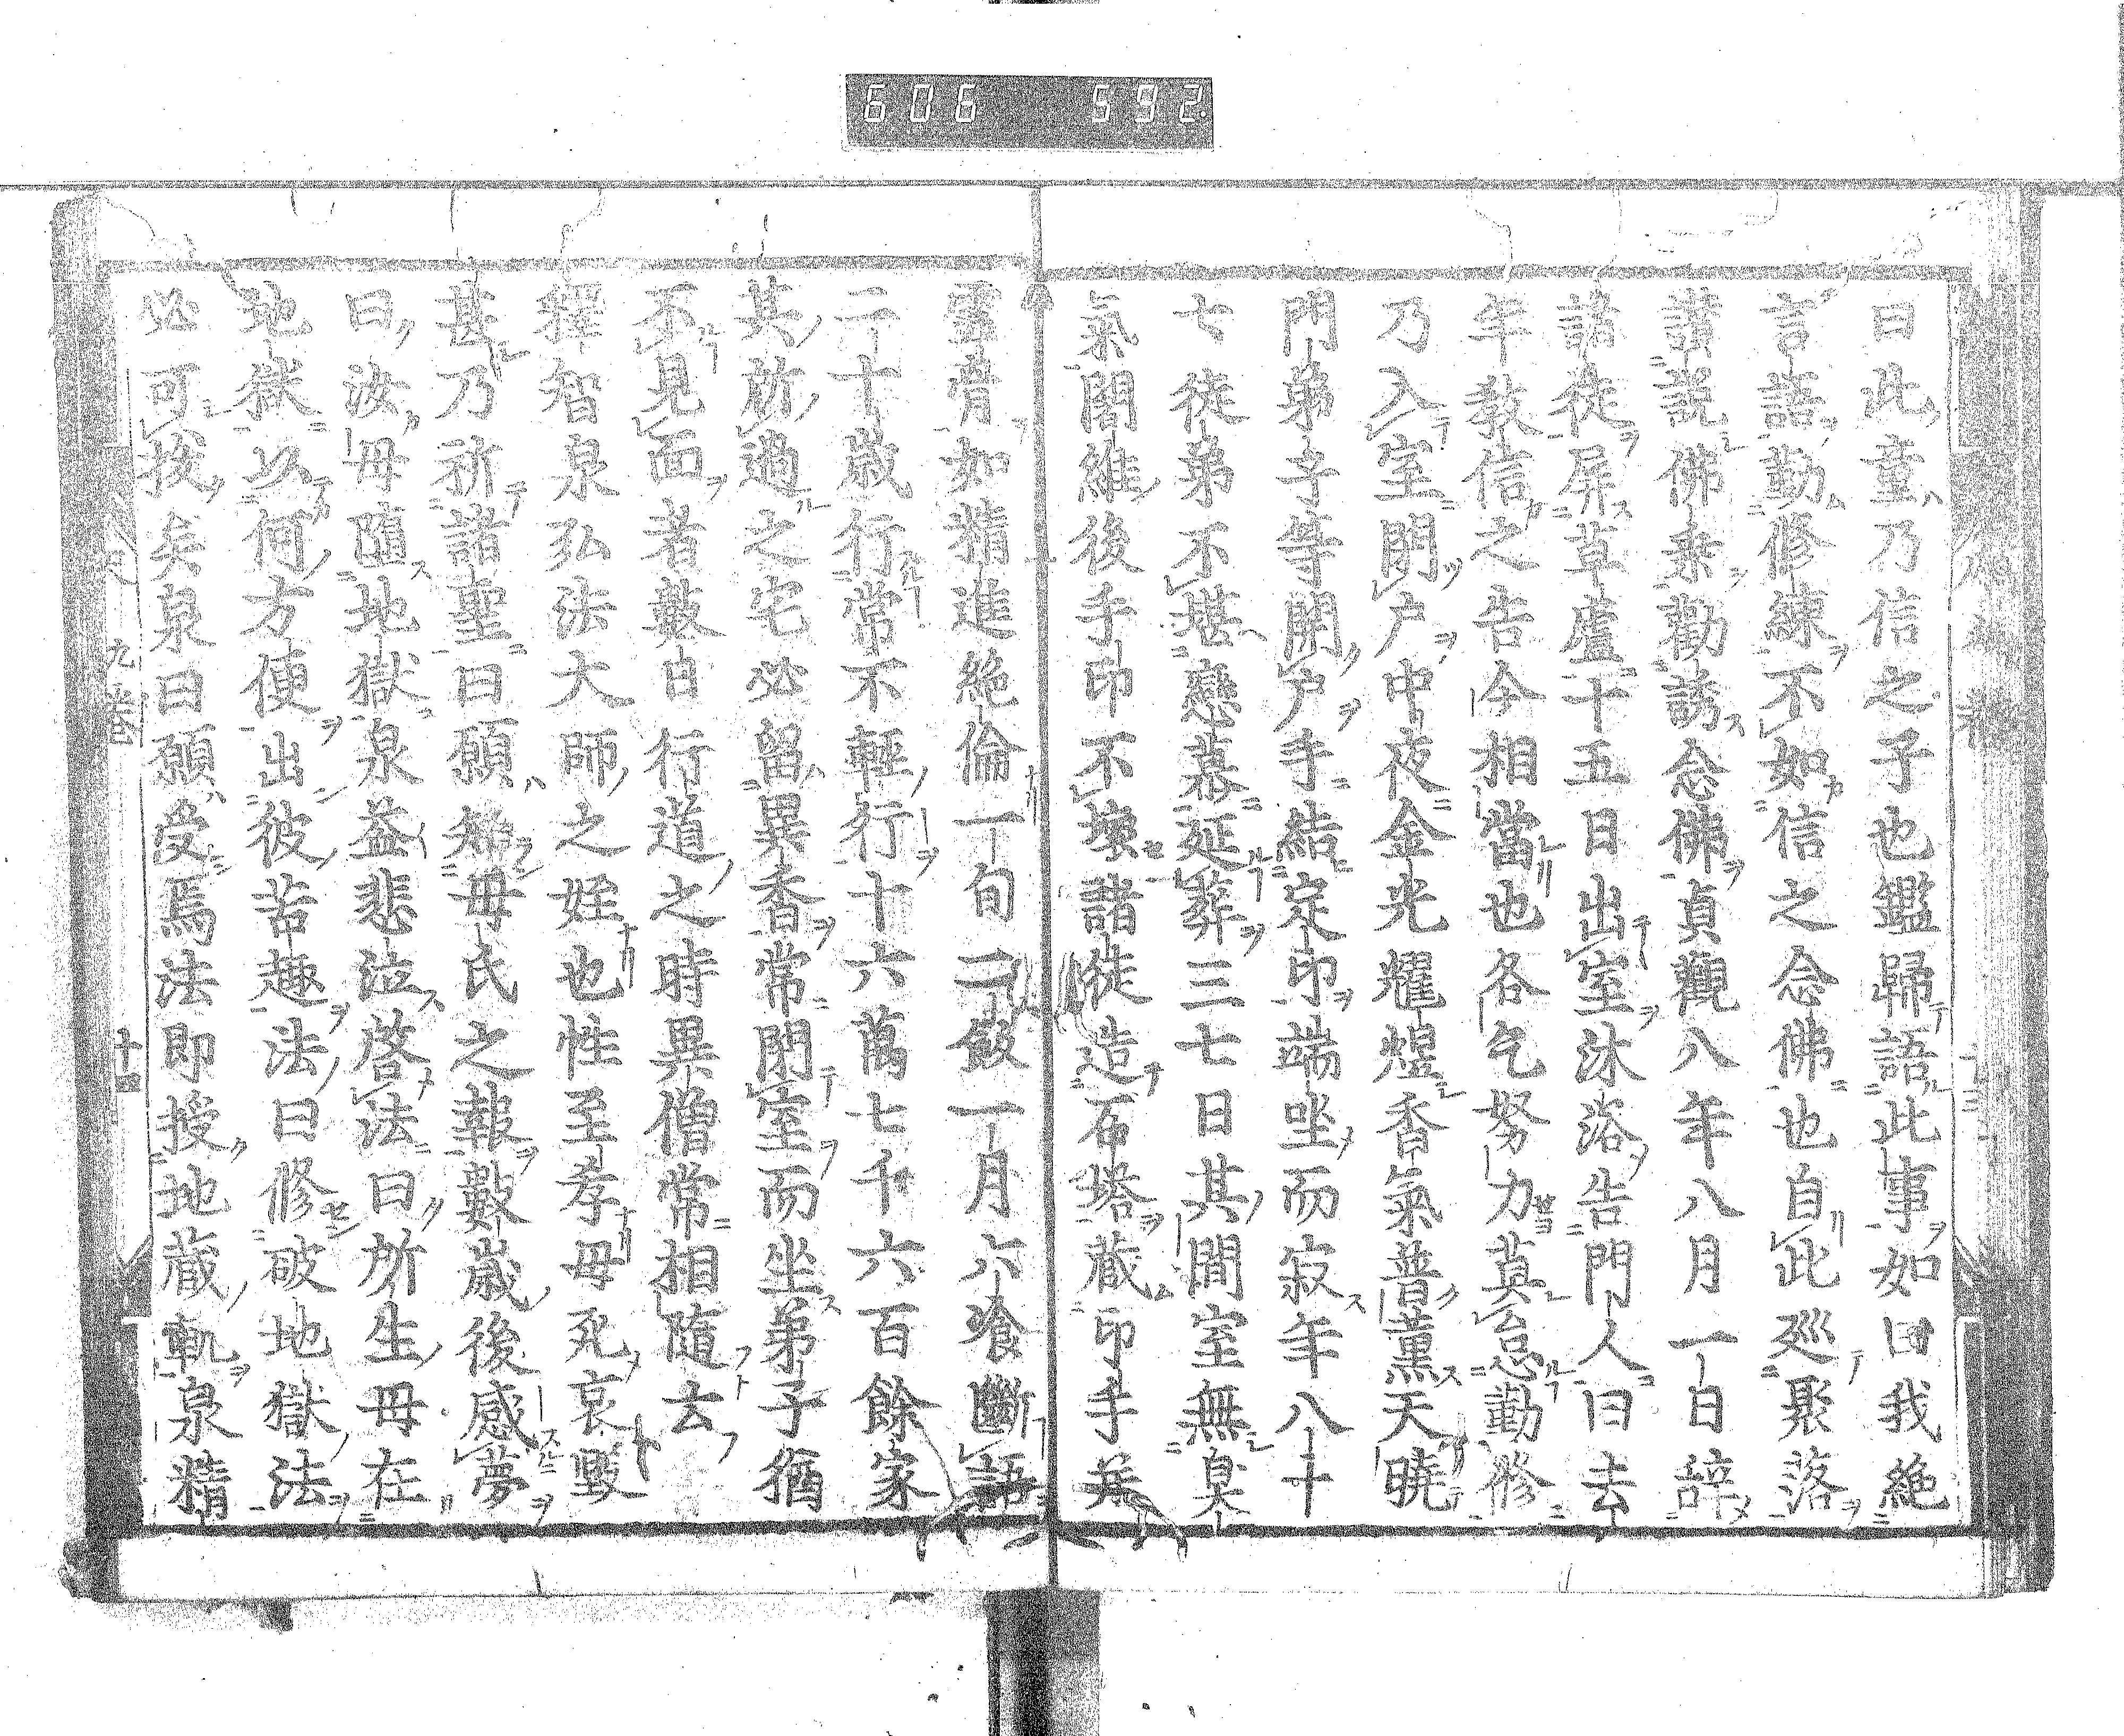 曰此童乃信之子也鑑歸語此事如曰我絶
言語勤修練不如信之念佛也自此廵聚落
讃説佛乘勸誘念佛貞觀八年八月一日辞
諸徒屏草廬十五日出室沐浴告門人曰去
年教信之告今相當也各乞努力莫怠勤修
乃入室閇户中夜金光耀煌香氣普薫天曉
門弟子等開户手結定印端坐而寂年八十
七徒弟不堪戀慕延葬三七日其間室無臭
氣闍維後手印不壊諸徒造石塔藏印手
霊骨如精進絶倫一旬二飯一月六飡斷語
二十歳行常不輕行十六萬七千六百餘家
其所過之宅必留異香常閇室而坐弟子猶
不見面者數日行道之時異僧常相隨去
釋智泉弘法大師之姪也性至孝母死哀毀
甚乃祈諸聖曰願知母氏之報數歳後感夢
曰汝母墮地獄泉益悲泣啓法曰所生母在
地獄以何方便出彼苦趣法曰修破地獄法
必可拔矣泉曰願受焉法即授地藏軌泉精
九巻
十四
606 592